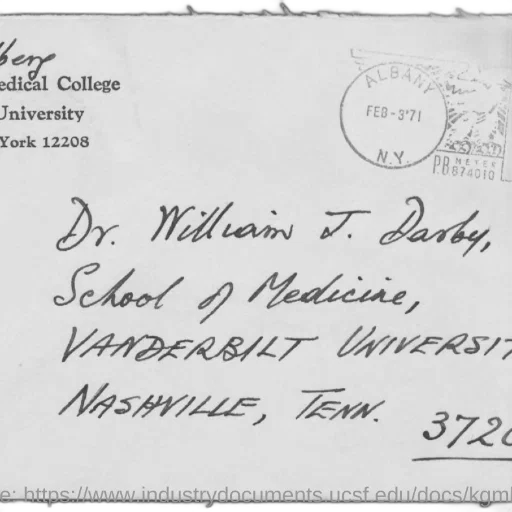 edical College
University
York 12208
ALBANY
FEB-3'71
N.Y.
P.B METER
874010
Dr. William J. Darby,
School of Medicine,
VANDERBILT UNIVERSIT
NASHVILLE, TENN.
372
https://www.industrydocuments.ucsf.edu/docs/kgm